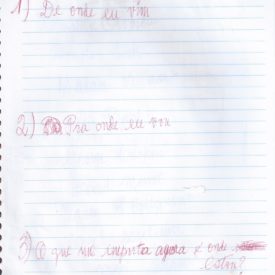 1) De onde eu vim
2) Pra onde eu vou
3) O que me importa agora é onde
estou?